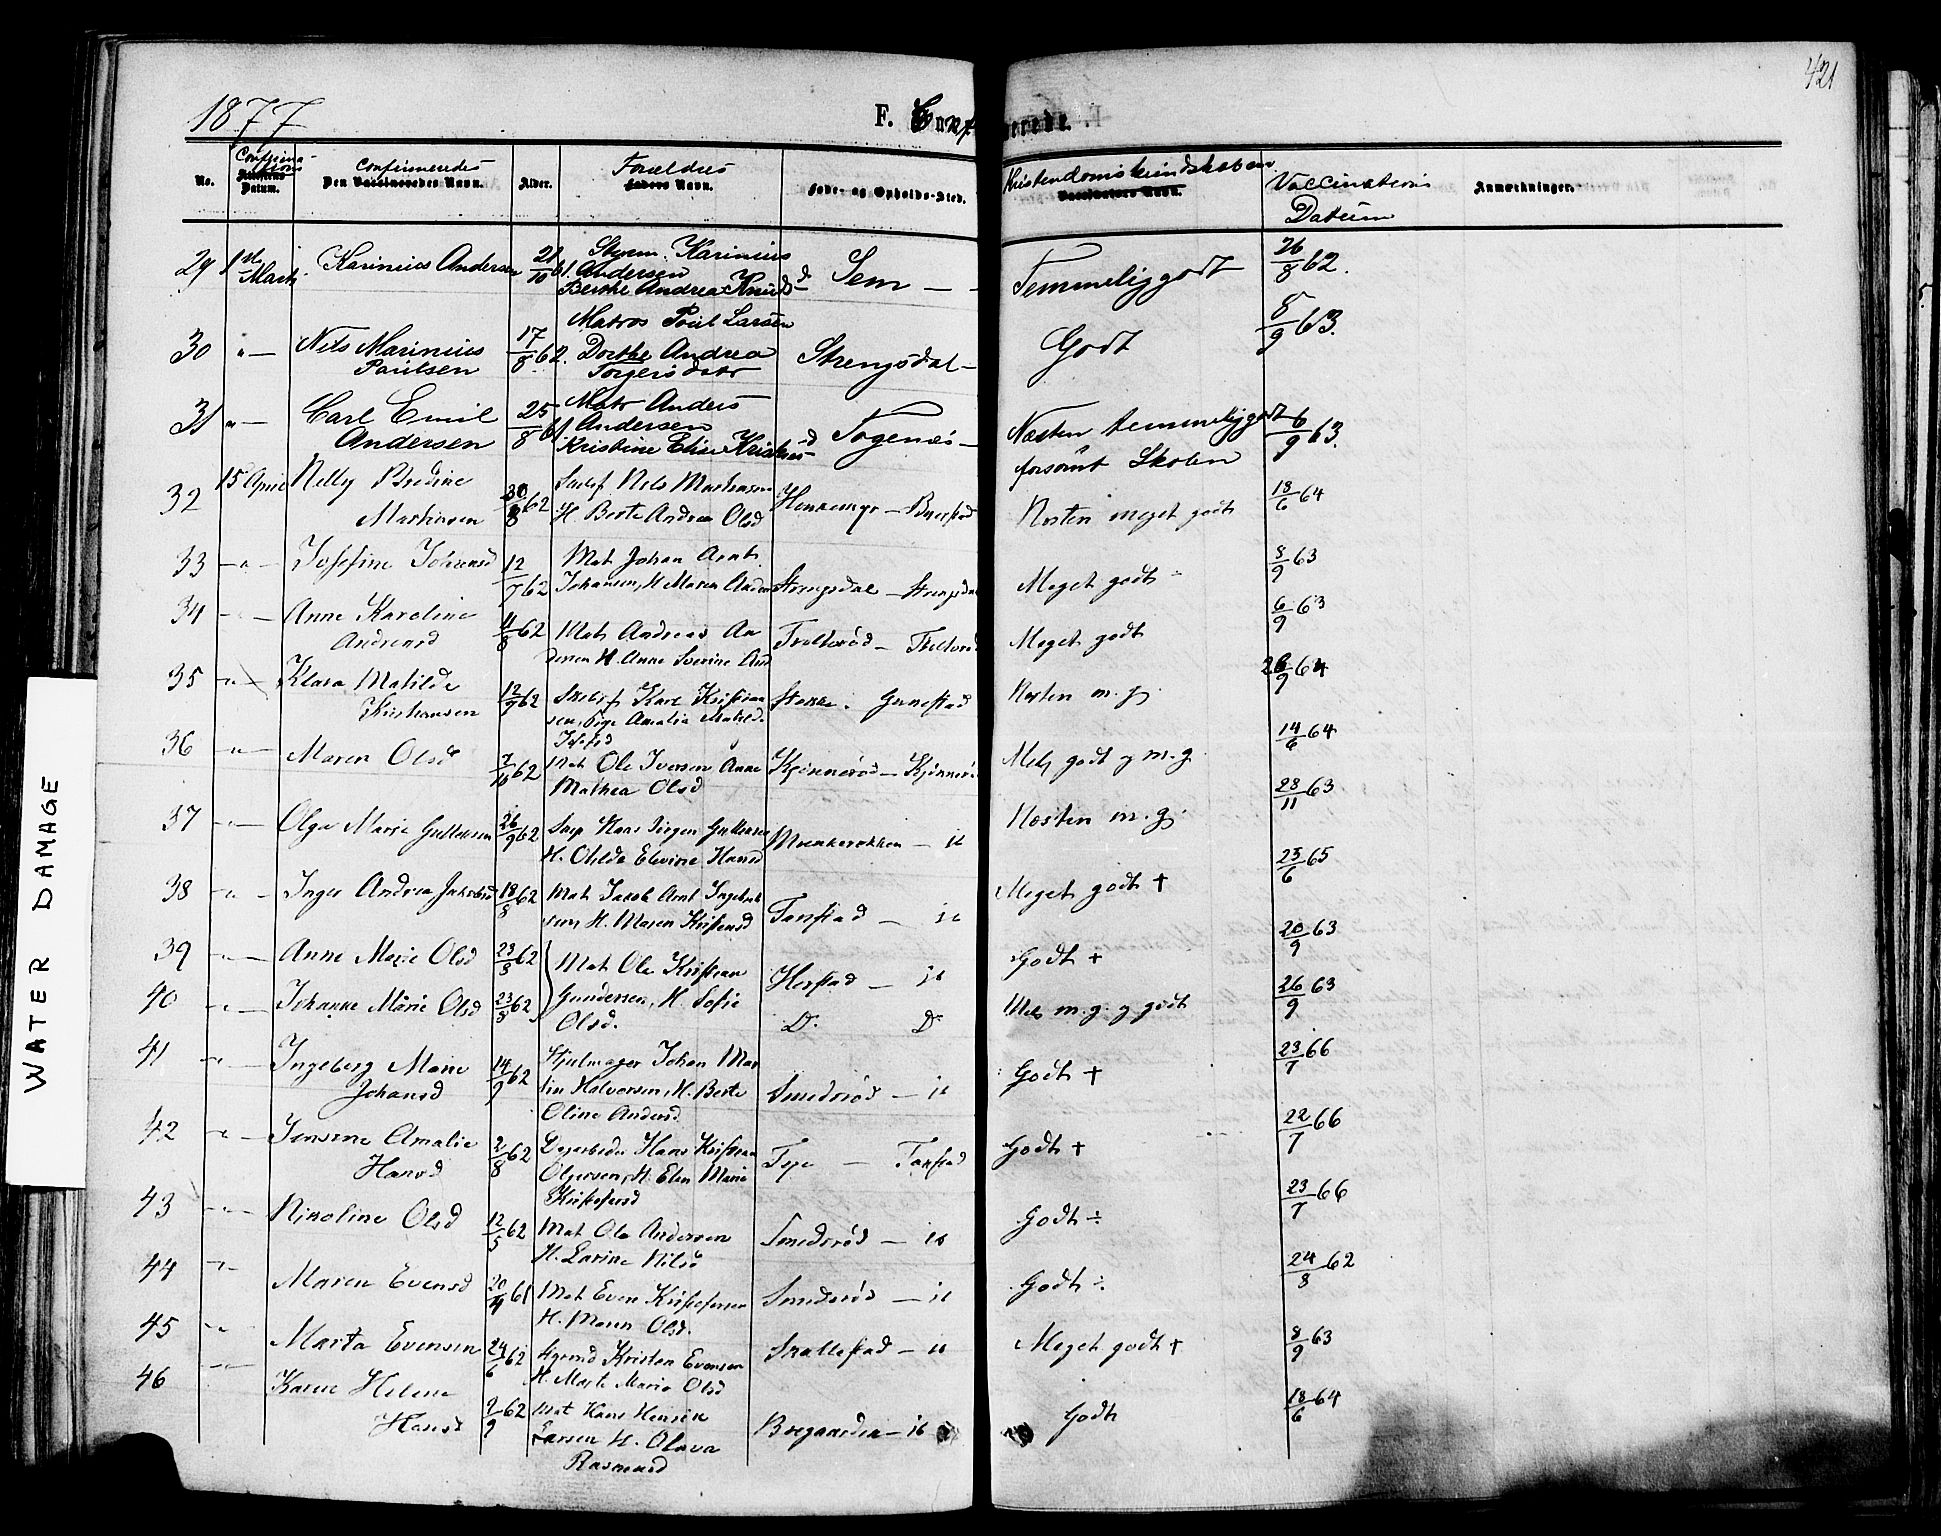 421
1877
F. Confirmerede.
No.
Confirmations
Attestens
Datum.
Confirmeredes
Den Vaccineredes Navn.
Alder.
Forældres
Faders Navn.
Føde- og Opholds-Sted.
Kristendomskundskaben
Vaccinators Navn.
Vaccinations
Datum
Anmærkninger.
29 1ste Marts Karinius Andersen 21/10 61. Styrm. Karinius Andersen Berthe Andrea Knudsd Sem — Temmelig godt 26/8 62.
30 " — Nils Marinius Paulsen 17/8 62. Matros Poul Larsen Dorthe Andrea Torgersdatr Strengsdal — Godt 8/9 63.
31 " — Carl Emil Andersen 25/8 61 Matr Anders Andersen Kristine Elise Kristensd Togenæs — Næsten temmelig godt forsømt Skolen 6/9 63.
32 15 April Nelly Bredine Mathisen 30/8 62 Nils Mathisen H. Berte Andrea Olsd — Næsten meget godt 18/6 64
33 — " — Josefine Johansd 12/7 62 Mat Johan Arnt Johansen, H Maren Strengsdal — Meget godt ÷ 8/9 63
34 — " — Anne Karoline Andreasd 4/8 62 Mat Andreas Andersen H. Anne Severine Meget godt 6/9 63
35 — " — Klara Matilde Kristiansen 12/9 62 Karl Kristiansen, Pige Amalia Matilde Stokke. Gunestad Næsten m. g. 26/9 64
36 — " — Maren Olsd 7/10 62 Mat Ole Iversen Anne Mathea Olsd Kjønnerød — Kjønnerød Mel godt og m. g 14/6 64
37 — " — Olga Marie Gullaksen 26/9 62 Hans Jørgen Gullaksen H. Olilde Elevine Hansd — ib Næsten m. g. 28/11 63
38 — " — Inger Andrea Jakobsd 18/8 62 Mat Jacob Arnt Ingebretsen, H. Maren Kristensd Tanstad — ib Meget godt + 25/6 65
39 — " — Anne Marie Olsd 23/3 62 Mat Ole Kristian Herstad — ib Godt + 20/9 63
40 — " — Johanne Marie Olsd 23/3 62 Gundersen, H. Sofie Olsd. Do Do Mel m. g. og godt 26/9 63
41 — " — Ingeborg Marie Johansd 14/9 62 Hjulmager Johan Martin Halvorsen, H. Berte Oline Andersd Smedsrød — ib Godt + 23/7 66
42 — " — Jensine Amalie Hansd 2/8 62 Hans Kristian Olgersen, H. Elen Marie Kristofersd — Tanstad Godt + 22/7 66
43 — " — Nikoline Olsd 12/5 62 Mat Ole Andersen H. Larine Nilsd Smedsrød — ib Godt ÷ 23/7 66
44 — " — Maren Evensd 20/4 61 Mat Even Kristofersen H. Maren Olsd. Smedsrød — ib Godt ÷ 24/8 62
45 — " — Marta Evensen 24/6 62 Kristen Evensen H. Marte Marie Olsd Skallestad — ib Meget godt + 8/9 63
46 — " — Karen Helene Hansd 9/9 62 Mat Hans Henrik Larsen H. Olava Rasmusd Bregaarden — ib Godt 18/6 64
WATER DAMAGE